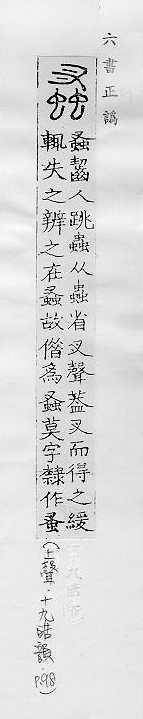 六書正譌
𧒒
蝨齧人跳蟲从蟲省叉聲葢叉而得之緩
輒失之辨之在蝨故偕爲蝨莫字隸作蚤
(上聲·十九皓韻 p.98)